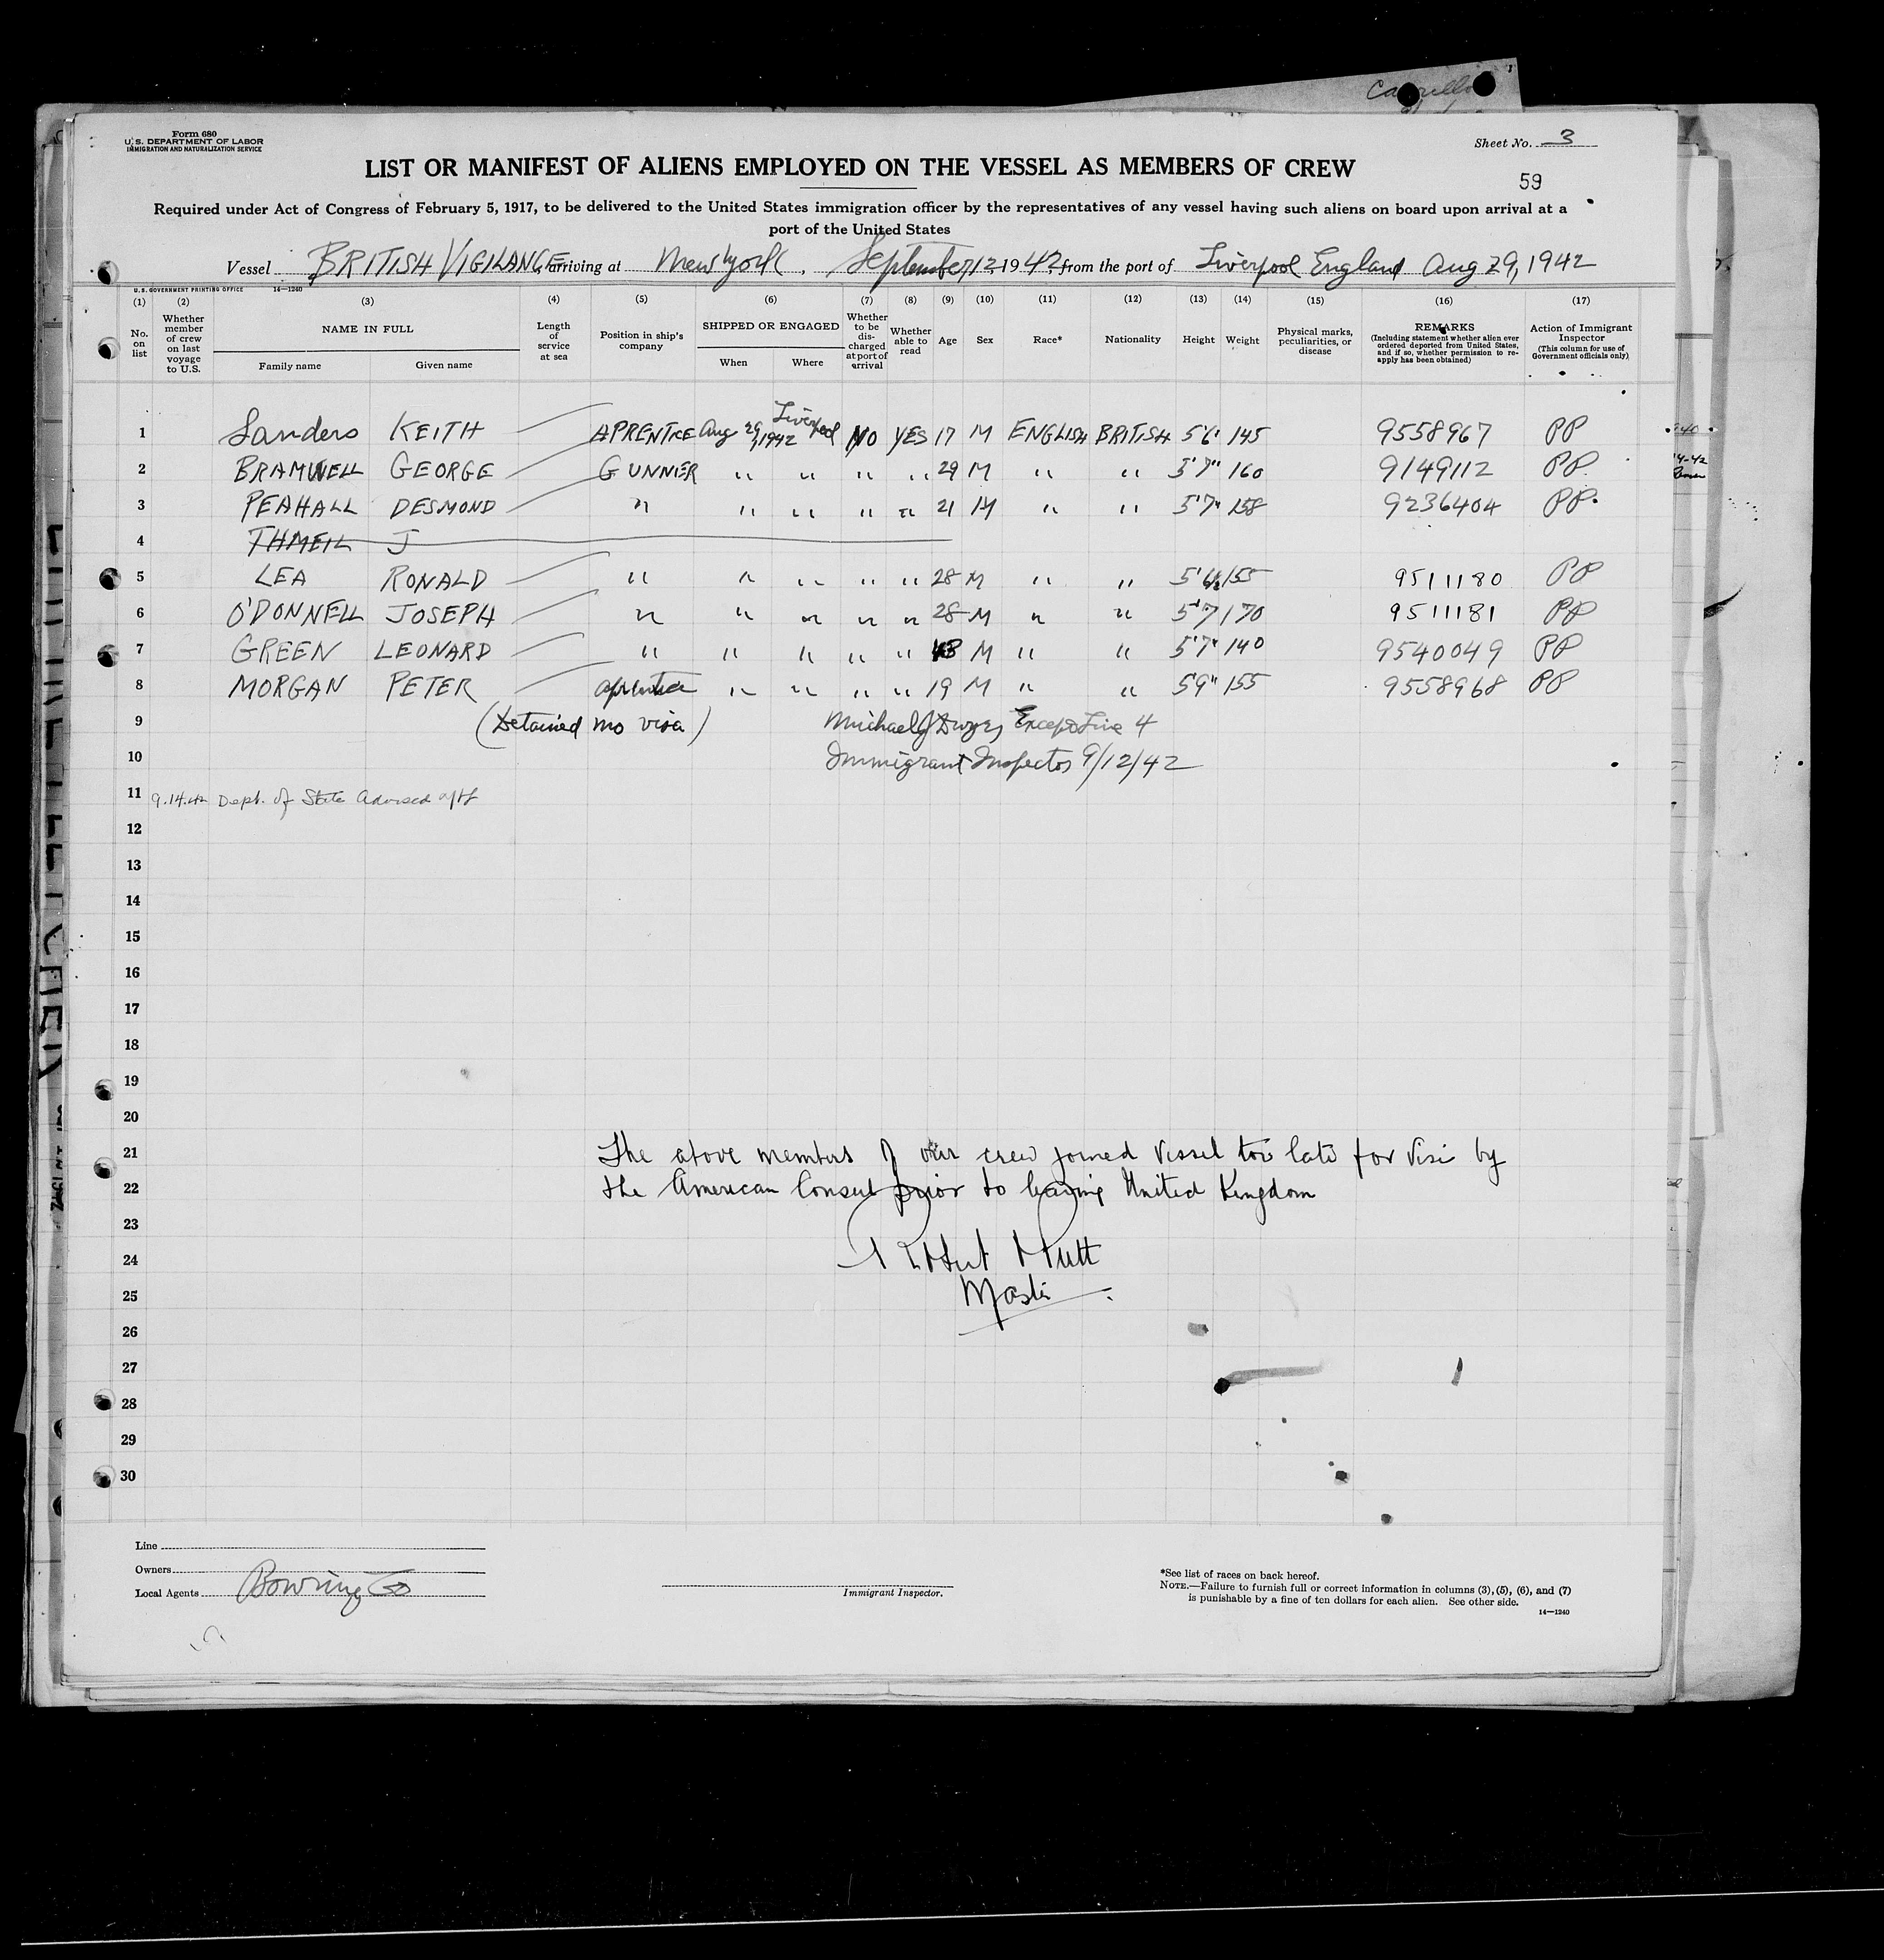 Form 680
U. S. DEPARTMENT OF LABOR
IMMIGRATION AND NATURALIZATION SERVICE
Sheet No. 3
LIST OR MANIFEST OF ALIENS EMPLOYED ON THE VESSEL AS MEMBERS OF CREW
59
Required under Act of Congress of February 5, 1917, to be delivered to the United States immigration officer by the representatives of any vessel having such aliens on board upon arrival at a
port of the United States
Vessel BRITISH VIGILANCE, arriving at New York, September 12 1942, from the port of Liverpool England Aug 29, 1942
U. S. GOVERNMENT PRINTING OFFICE 14—1240
(1) (2) (3) (4) (5) (6) (7) (8) (9) (10) (11) (12) (13) (14) (15) (16) (17)
No. on list
Whether member of crew on last voyage to U.S.
NAME IN FULL
Family name Given name
Length of service at sea
Position in ship's company
SHIPPED OR ENGAGED
When Where
Whether to be discharged at port of arrival
Whether able to read
Age
Sex
Race*
Nationality
Height
Weight
Physical marks, peculiarities, or disease
REMARKS
(Including statement whether alien ever ordered deported from United States, and if so, whether permission to reapply has been obtained)
Action of Immigrant Inspector
(This column for use of Government officials only)
1 Sanders KEITH APRENTICE Aug 29, 1942 Liverpool NO YES 17 M ENGLISH BRITISH 5'6" 145 9558967 PP
2 BRAMWELL GEORGE GUNNER " " " " 29 M " " 5'7" 160 9149112 PP
3 PEAHALL DESMOND " " " " " 21 M " " 5'7" 158 9236404 PP
4 THMEIL J
5 LEA RONALD " " " " " 28 M " " 5'6½ 155 9511180 PP
6 O'DONNELL JOSEPH " " " " " 28 M " " 5'7 170 9511181 PP
7 GREEN LEONARD " " " " " M " " 5'7" 140 9540049 PP
8 MORGAN PETER aprentice " " " " 19 M " " 5'9" 155 9558968 PP
9 (Detained no visa) Michael J Dwyer Except Line 4
10 Immigrant Inspector 9/12/42
11 9.14.42 Dept. of State Advised
12
13
14
15
16
17
18
19
20
21 The above members of our crew joined vessel too late for visi by
22 the American Consul prior to leaving United Kingdom
23
24
25 Master
26
27
28
29
30
Line
Owners
Local Agents Bowring Co
Immigrant Inspector.
*See list of races on back hereof.
NOTE.—Failure to furnish full or correct information in columns (3), (5), (6), and (7)
is punishable by a fine of ten dollars for each alien. See other side.
14—1240